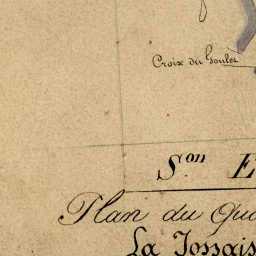 Croix du Goulet
Son E
Plan du Qua
La Jossais